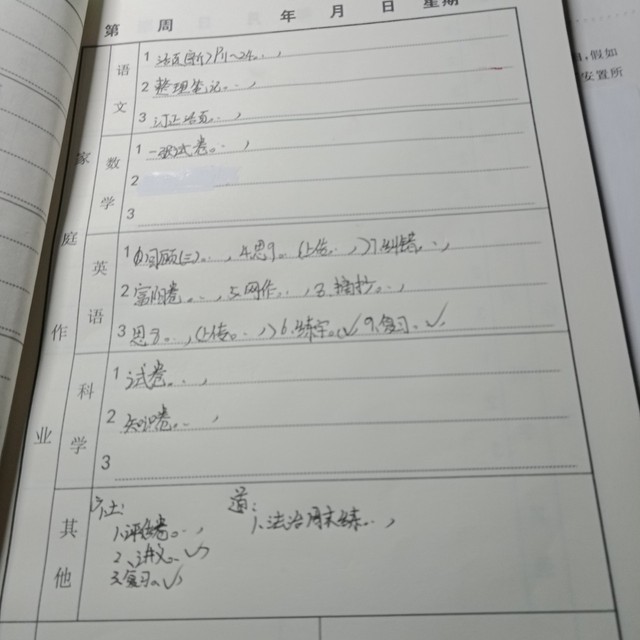 第 周 年 月 日 星期
家庭作业
语文
1 活页(新)P1~24
2 整理笔记
3 订正活页
数学
1 一张试卷
2
3
英语
1 回顾(三) 4.思 (上传 )7.纠错
2 富阳卷 5.网作 8.摘抄
3 思 (上传 )6.练字 ✓ 9.复习 ✓
科学
1 试卷
2 知识卷
3
其他
历社: 道:
1.评卷 1.法治周末练
2.讲义 ✓
3.复习 ✓
假如
安置所